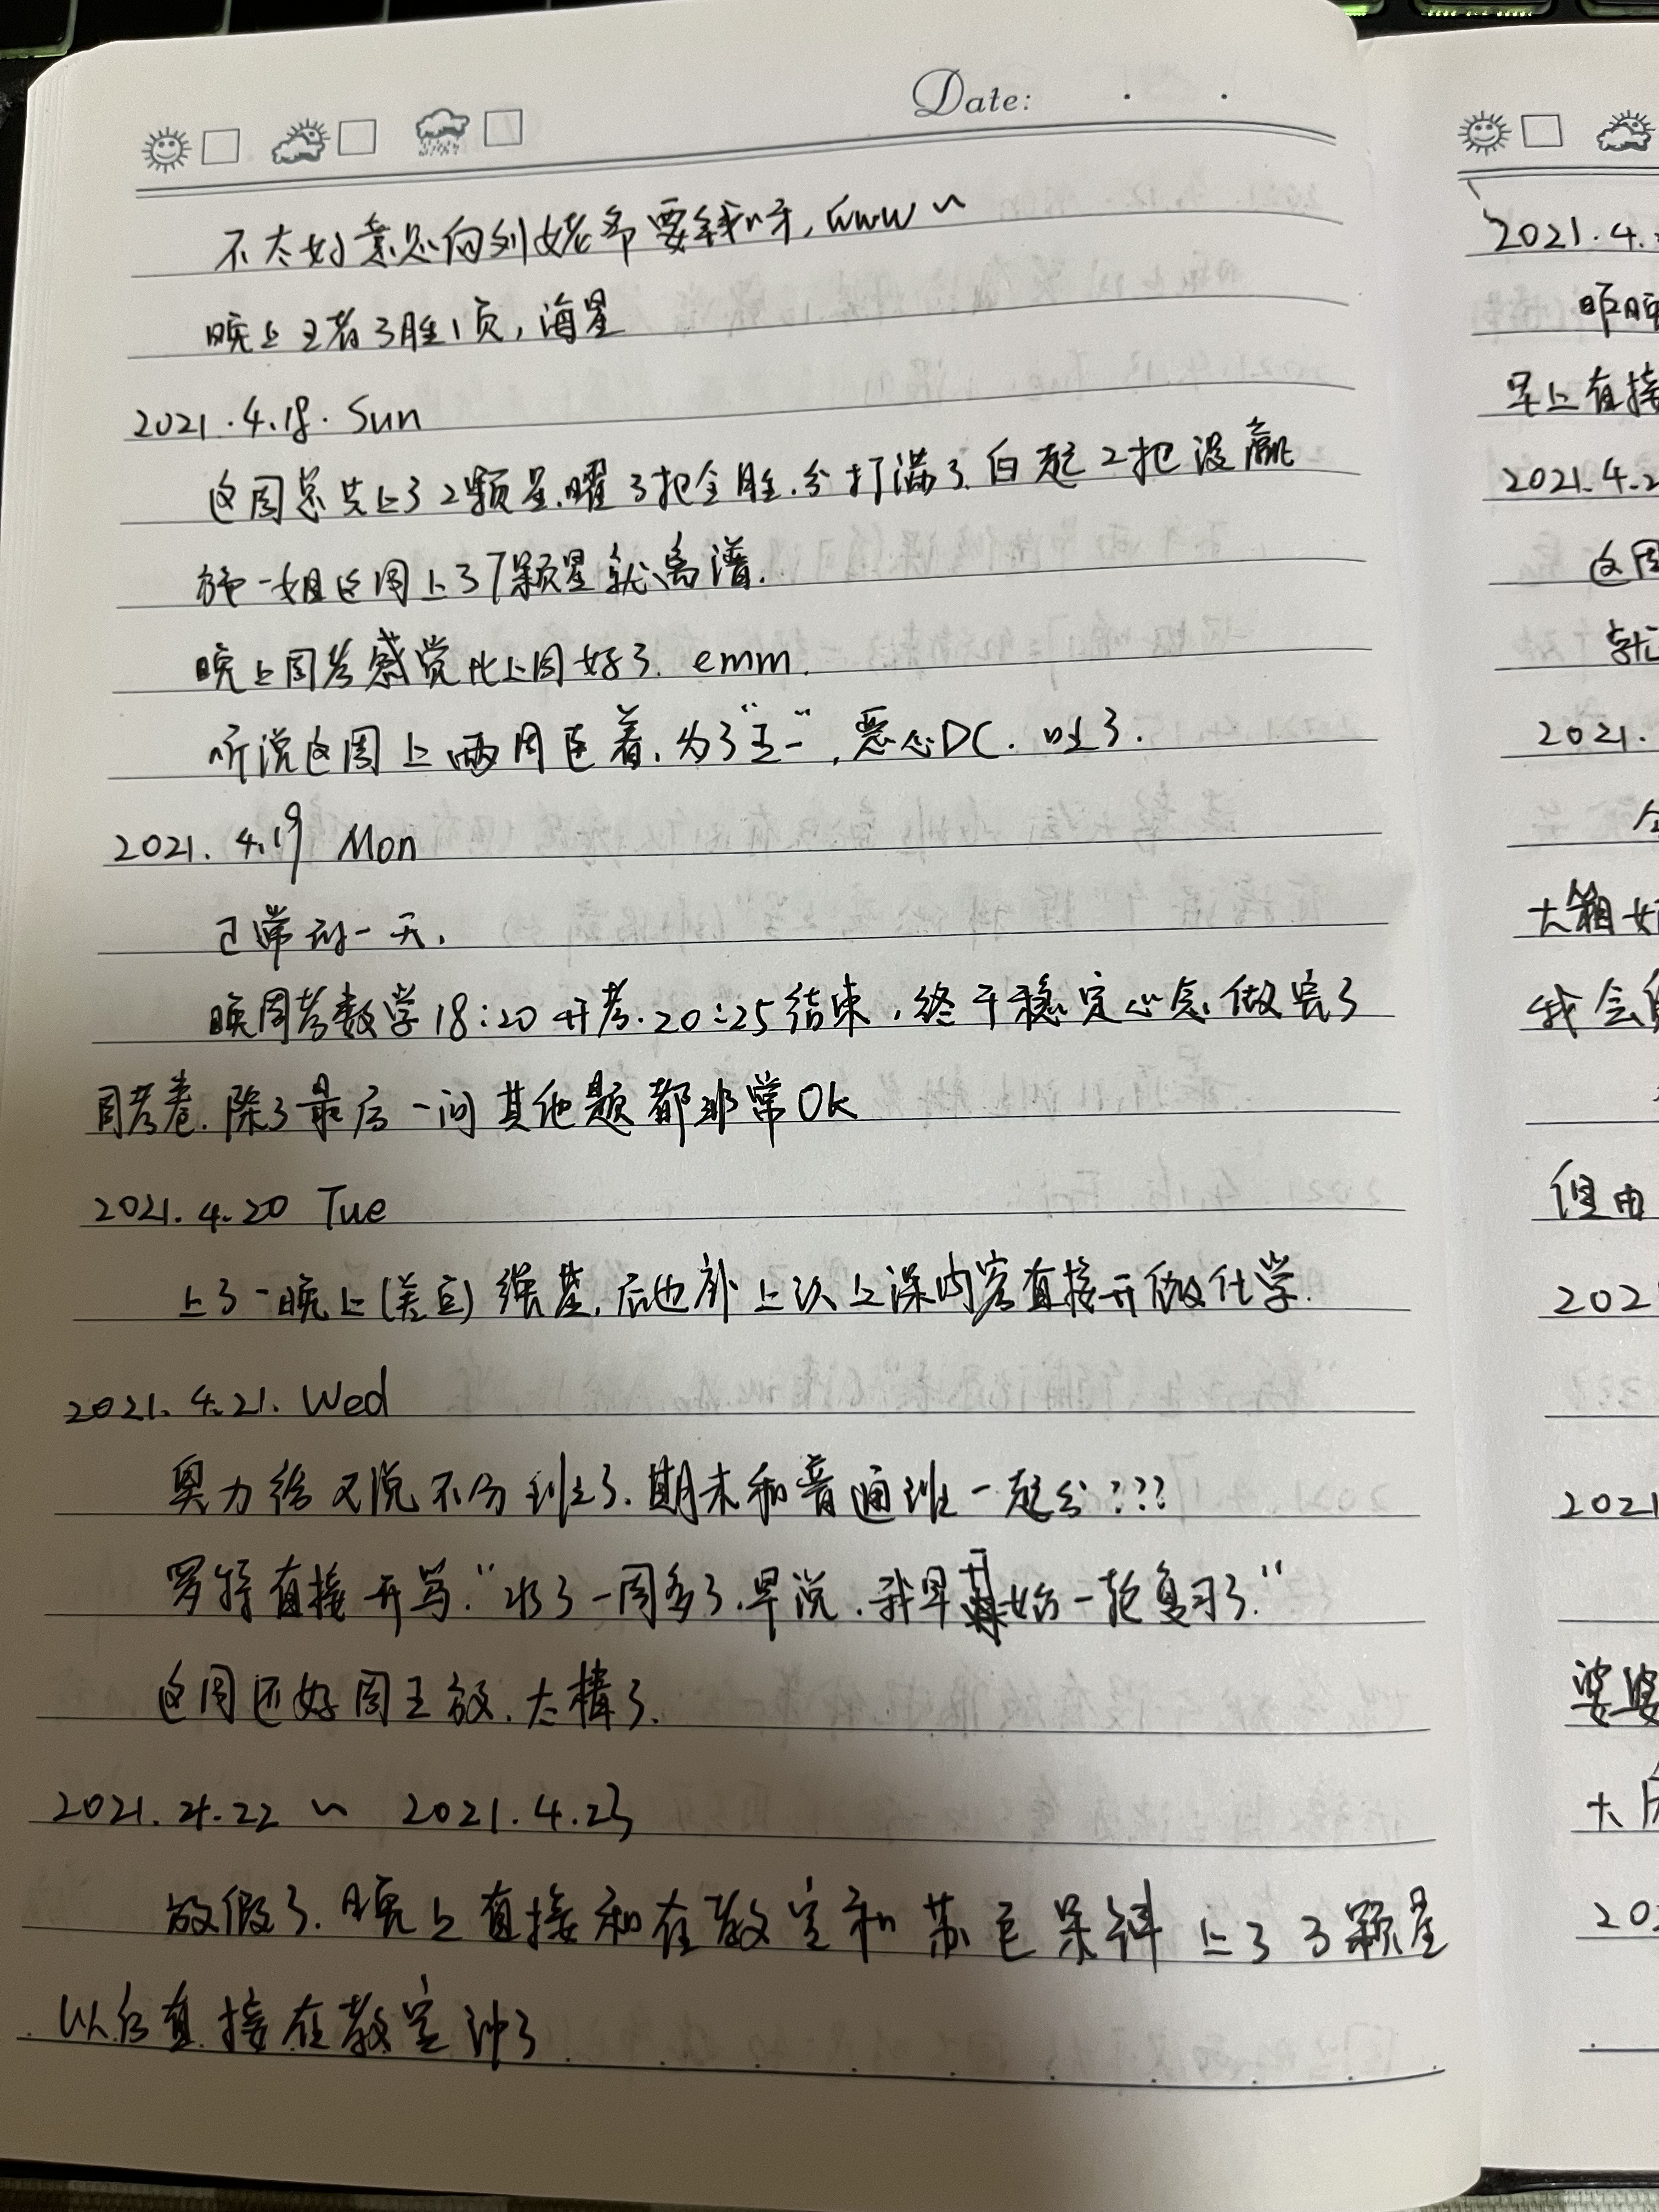 Date:
不太好意思向刘姥爷要钱呀,www~
晚上王者3胜1负,海星
2021.4.18. Sun
这周总共上了2颗星.曜3把全胜.分打满了.白起2把没赢
一姐这周上了7颗星就离谱.
晚上周考感觉比上周好了. emm.
听说这周上两周连着.为了"五一",恶心DC.吐了.
2021. 4.19 Mon
正常的一天.
晚周考数学18:20开考.20:25结束,终于稳定心态做完了
周考卷.除了最后一问其他题都非常OK
2021.4.20 Tue
上了一晚上(美庄)强基.后也补上次上课内容直接开做化学.
2021.4.21. Wed
奥力给又说不分班了.期末和普通班一起分???
罗特直接开骂."水了一周多了.早说.我早开始一轮复习了."
这周还好周五放.太棒了.
2021.4.22 ~ 2021.4.23
放假了.晚上直接和在教室和苏 上了3颗星
以后直接在教室冲了
2021.4.
昨晚
早上直接
2021.4.2
这周
就
2021.
大箱
我会
但由
202
2021
婆婆
大
20